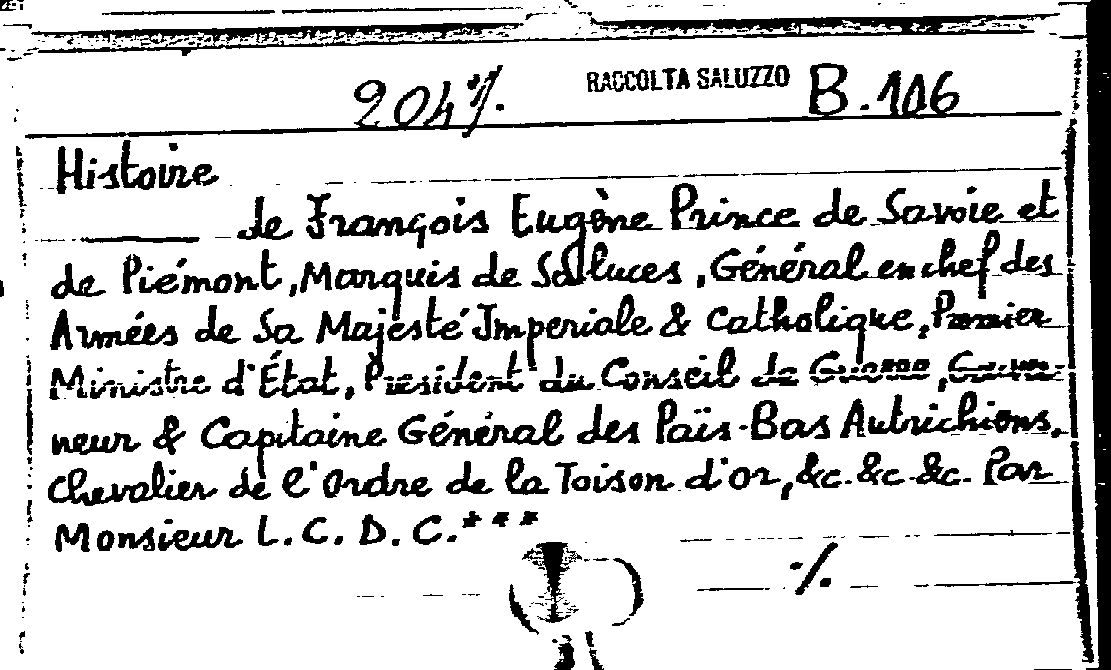 204 ./. RACCOLTA SALUZZO B.106
Histoire
de François Eugène Prince de Savoie et
de Piémont, Marquis de Saluces, Général en chef des
Armées de Sa Majesté Imperiale & Catholique, Premier
Ministre d'État, President du Conseil de Guerre, Gouver-
neur & Capitaine Général des Païs-Bas Autrichiens,
Chevalier de l'Ordre de la Toison d'or, &c. &c. &c. Par
Monsieur L. C. D. C.***
./.